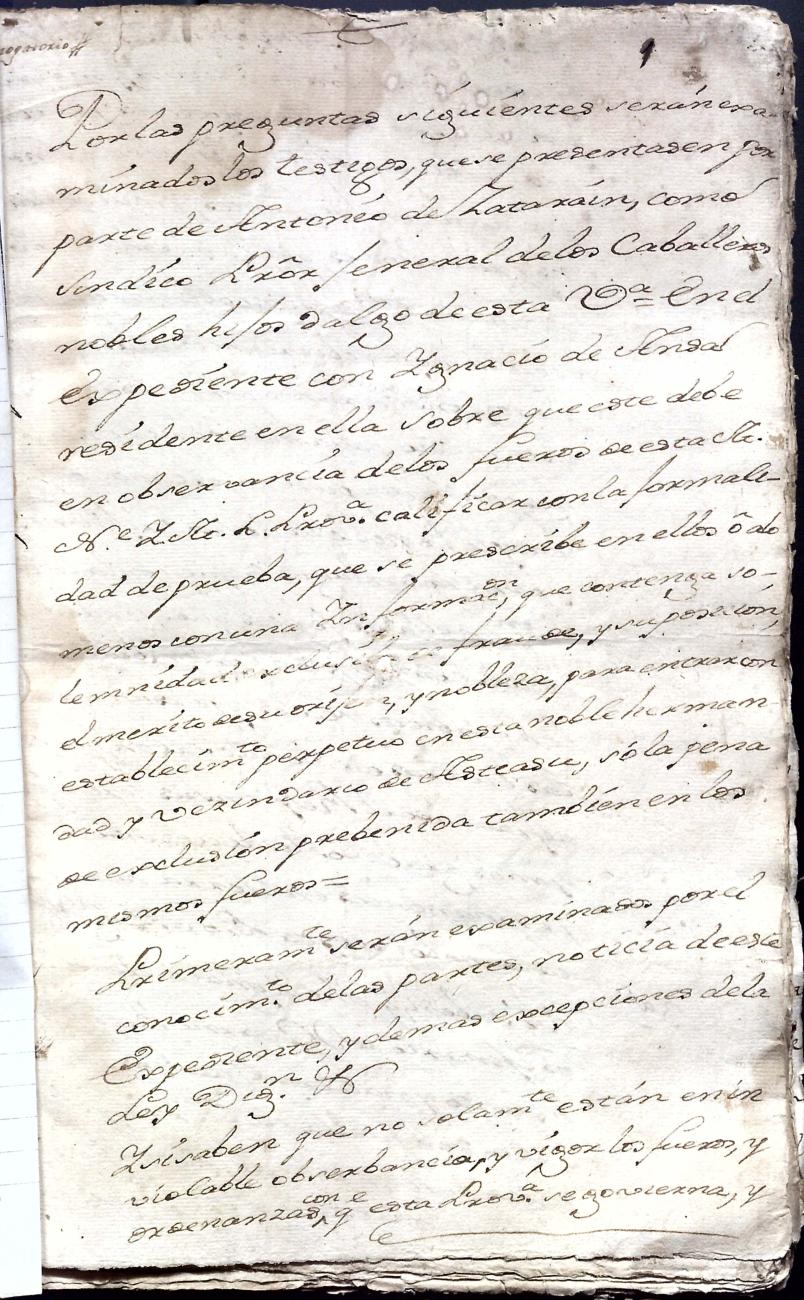 rogatorio
1
Por las preguntas siguientes serán exa-
minados los testigos, que se presentasen por
parte de Antonio de Zatarain, como
sindico Prõr Jeneral delos Caballeros
nobles hijos dalgo de esta Vª En el
Expediente con Ygnacio de Ansa
residente en ella sobre que este debe
en observancia delos fueros de esta M.
N.e Y M. L. Provª. calificar con la formali-
dad de prueba, que se prescribe en ellos õ alo
menos con una Informaon, que contenga so-
lemnidad exclusiba de fraude, y suposicion,
el merito de su orijen, y nobleza, para entrar con
establecimto perpetuo en esta noble herman
dad y vezindario de Asteasu, só la pena
de exclusión prebenida también en los
mismos fueros=
Primeramte serán examinados por el
conocimto. delas partes, noticia de este
Expediente, y demas excepciones dela
Ley Dign.
Y si saben que no solamte están en in
violable obserbancia, y vigor los fueros, y
ordenanzas, con qe esta Provª. se govierna, y